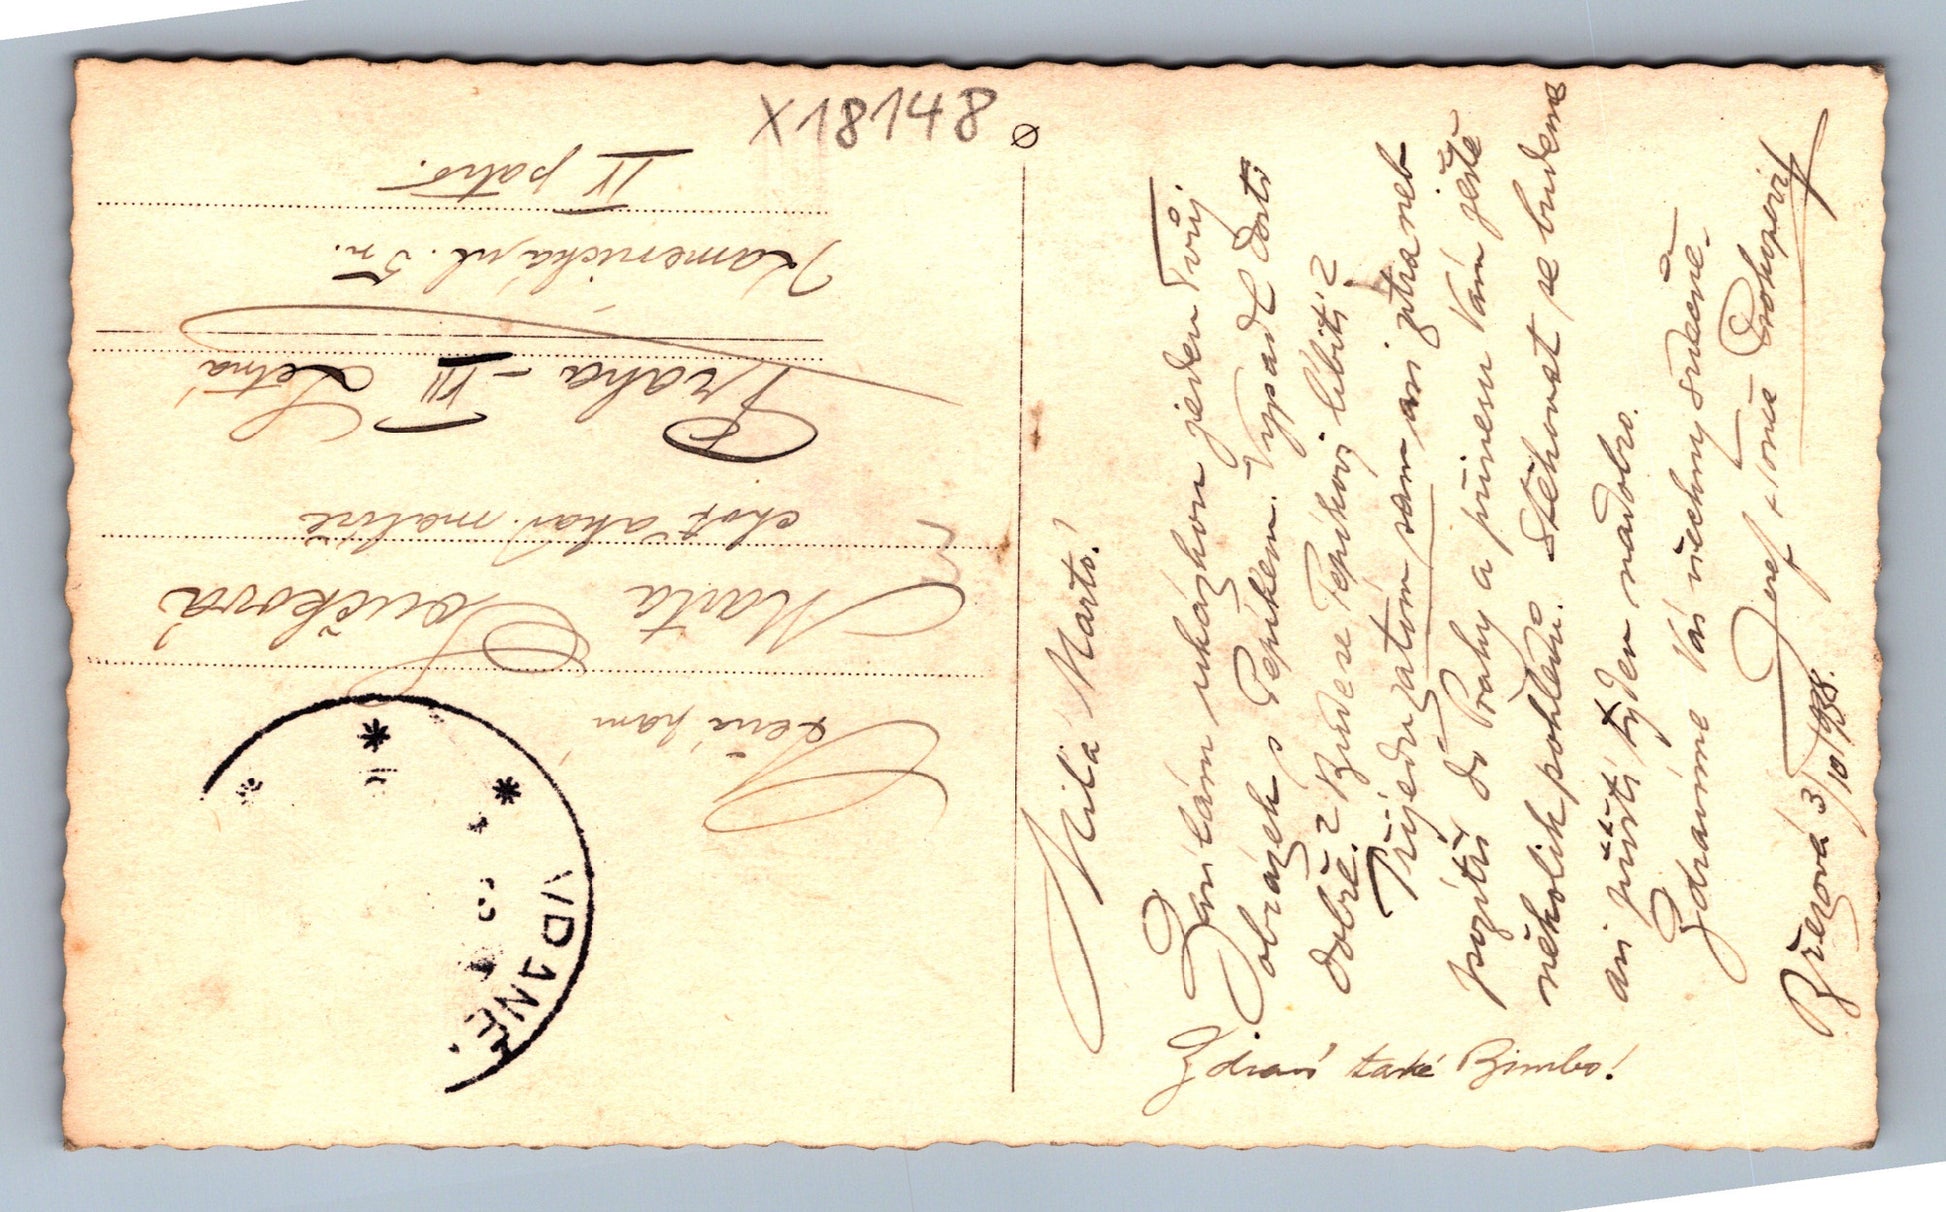 X18148
Milá Marto!
Zasílám ukázkou jeden Tvůj
obrázek s Pepíkem. Vypadl dosti
dobře? Bude se Pepíkovi líbiti?
Přijedu zatím sám asi zítra neb
pozítří do Prahy a přinesu Vám ještě
několik pohledů. Stěhovat se budeme
asi příští týden nadobro.
Zdravíme Vás všechny srdečně
Josef + Tonča Prokopovi
Březová 3/10 1938.
Zdraví také Bimbo!
Ctěná paní
Marta Součková
choť akad. malíře
Praha - VII Letná
Kamenická ul. 5 n.
II patro.